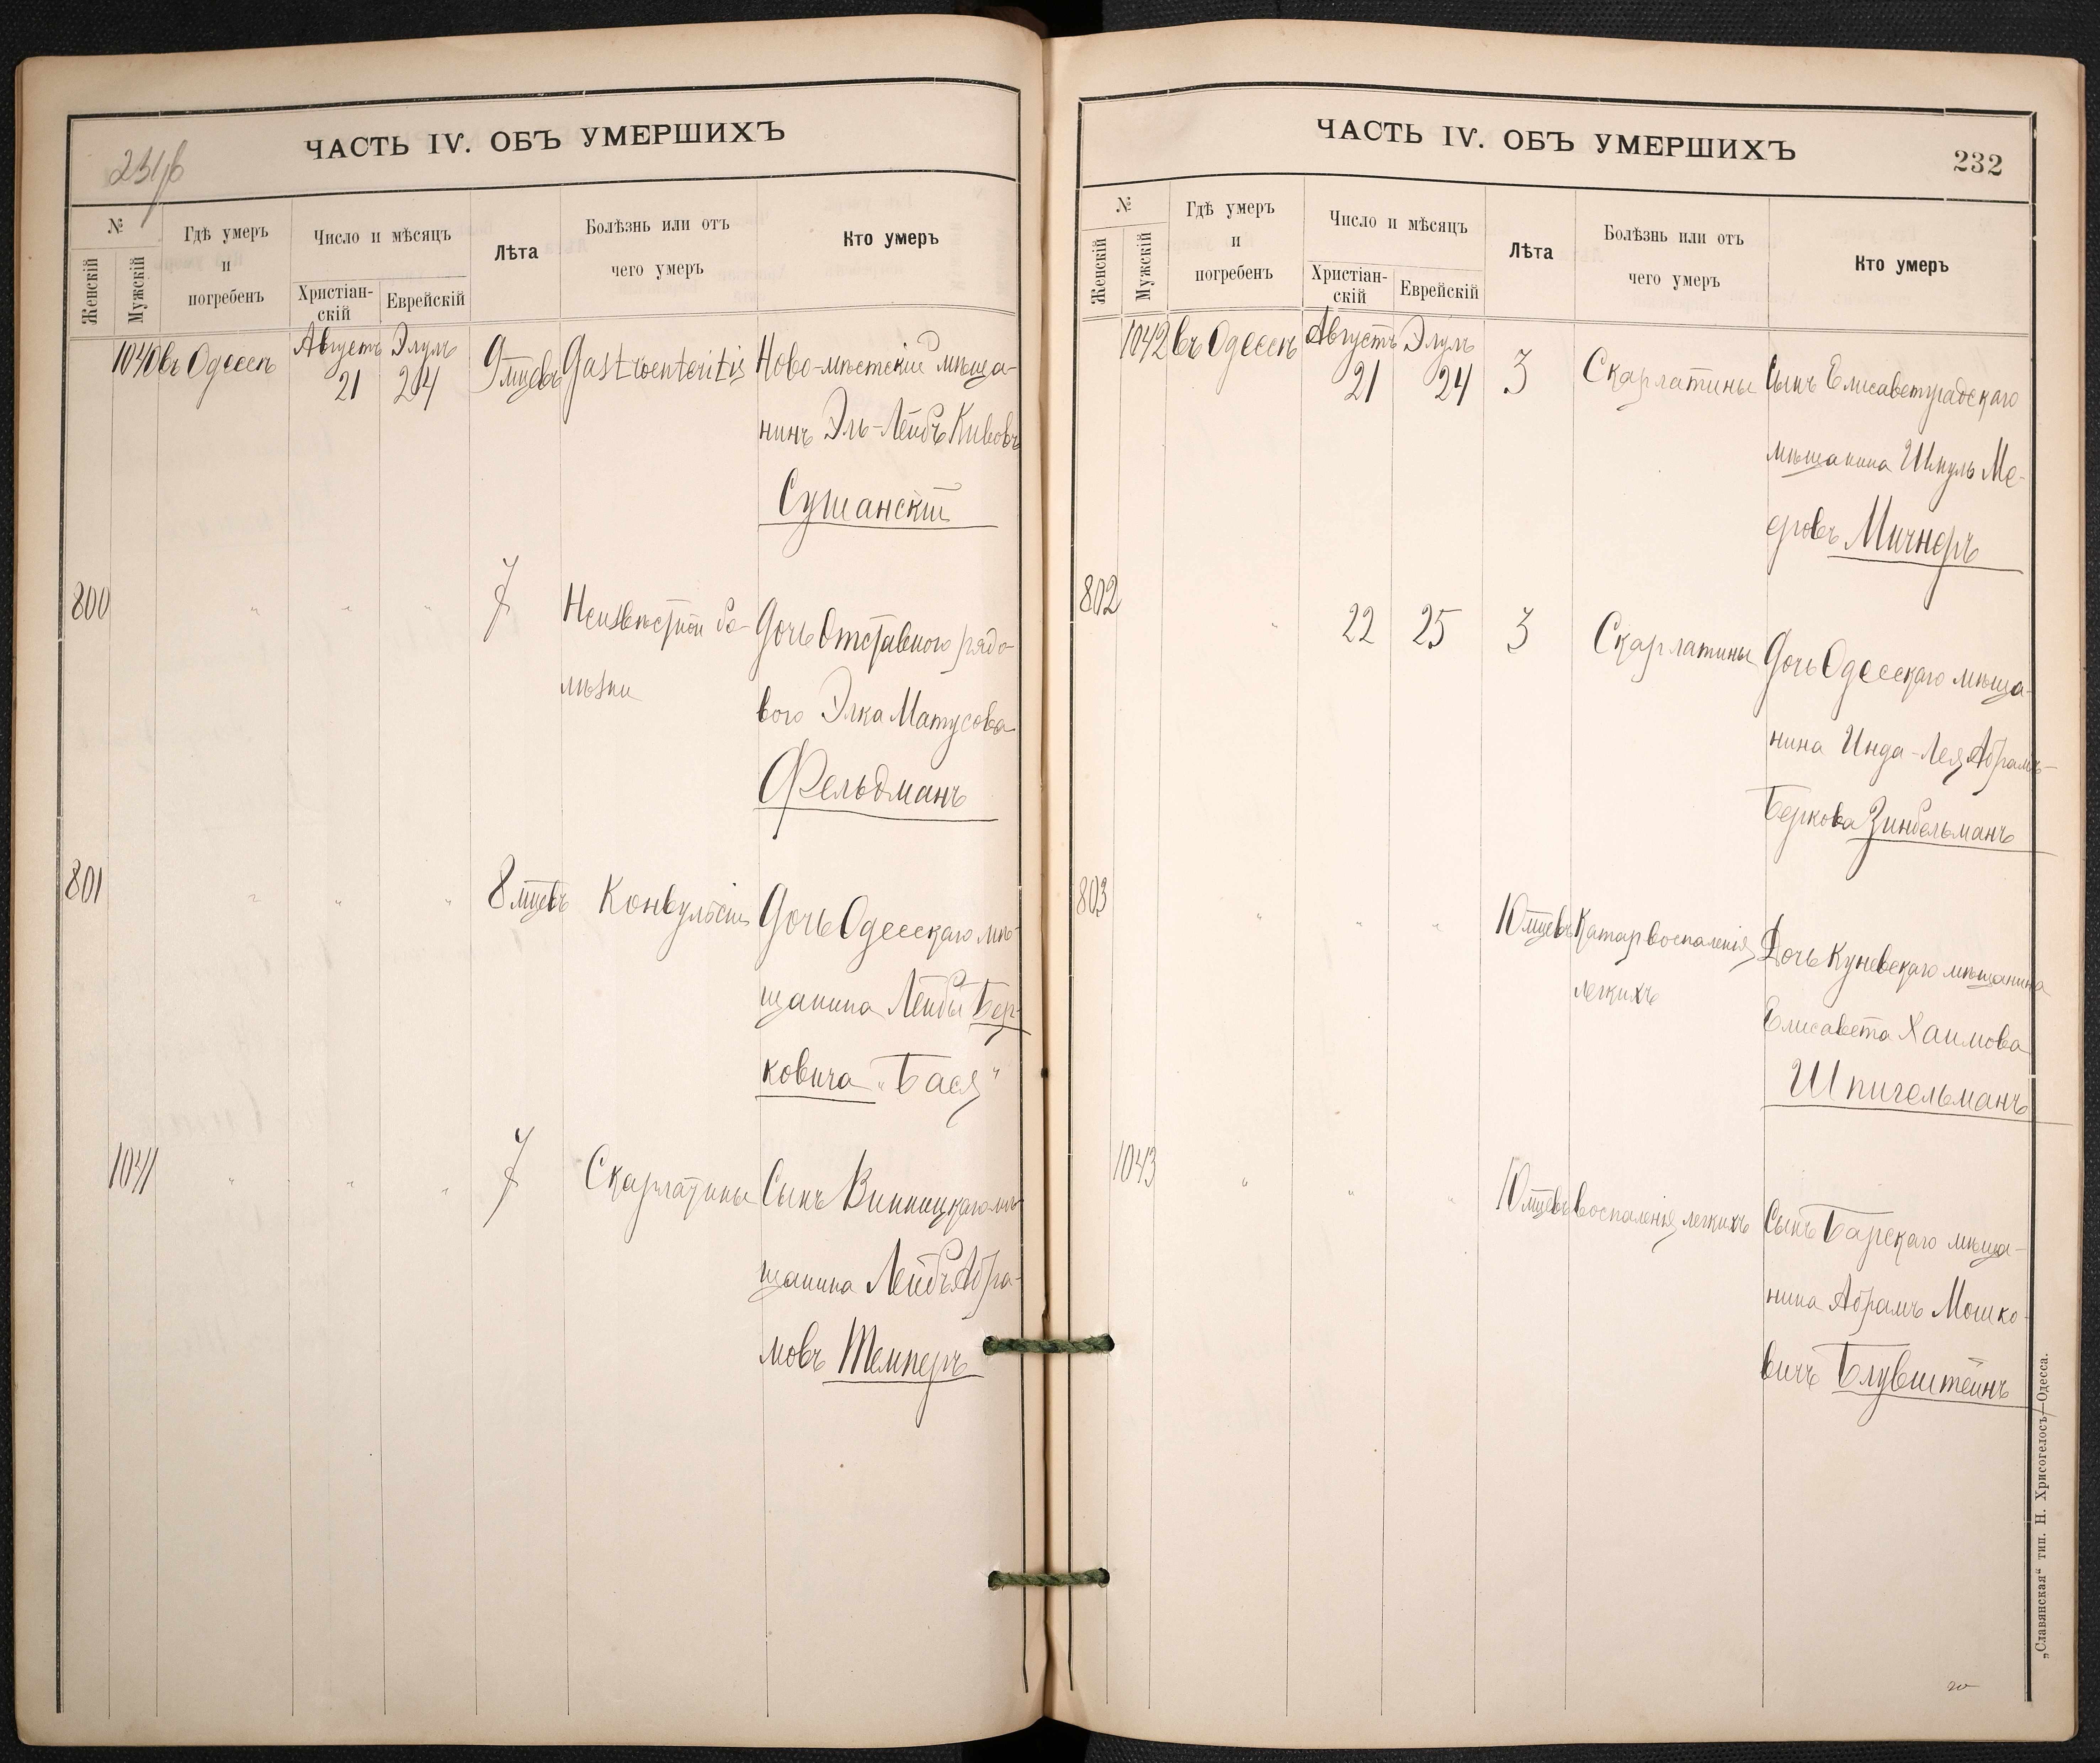 ЧАСТЬ IV. ОБЪ УМЕРШИХЪ
№
Женскій
Мужскій
Гдѣ умеръ
и
погребенъ
Число и мѣсяцъ
Христіан-
скій
Еврейскій
Лѣта
Болѣзнь или отъ
чего умеръ
Кто умеръ
1040 въ Одессѣ Августъ 21 Элулъ 24 9 мцевъ Gastroenteritis Ново-мѣстскій мѣща-
нинъ Эль-Лейбъ Кивовъ
Сушанскій
800 " " " 7 Неизвѣстной бо- Дочь Отставного рядо-
лѣзни вого Элка Матусова
Фельдманъ
801 " " " 8 мцевъ Конвульсіи Дочь Одесскаго мѣ-
щанина Лейбы Бер-
ковича „Бася"
1041 " " " 7 Скарлатины Сынъ Винницкаго мѣ-
щанина Лейбъ Абра-
мовъ Темперъ
ЧАСТЬ IV. ОБЪ УМЕРШИХЪ
232
№
Женскій
Мужскій
Гдѣ умеръ
и
погребенъ
Число и мѣсяцъ
Христіан-
скій
Еврейскій
Лѣта
Болѣзнь или отъ
чего умеръ
Кто умеръ
1042 въ Одессѣ Августъ 21 Элулъ 24 3 Скарлатины Сынъ Елисаветградскаго
мѣщанина Шмуль Ме-
еровъ Мичнеръ
802 " 22 25 3 Скарлатины Дочь Одесскаго мѣща-
нина Инда-Лея Абрамъ-
Беркова Зинбельманъ
803 " " " 10 мцевъ Катар воспаленія Дочь Куневскаго мѣщанина
легкихъ Елисавета Хаимова
Шпигельманъ
1043 " " " 10 мцевъ воспаленія легкихъ Сынъ Барскаго мѣща-
нина Абрамъ Мошко-
вичъ Блувштейнъ
„Славянская" тип. Н. Хрисогелосъ—Одесса.